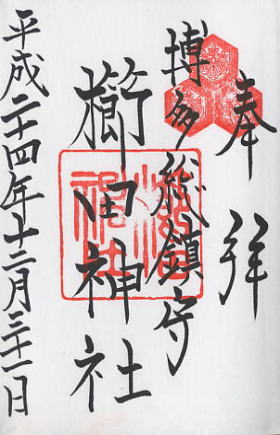 奉拝
博多総鎮守
櫛田神社
平成二十四年十二月三十一日